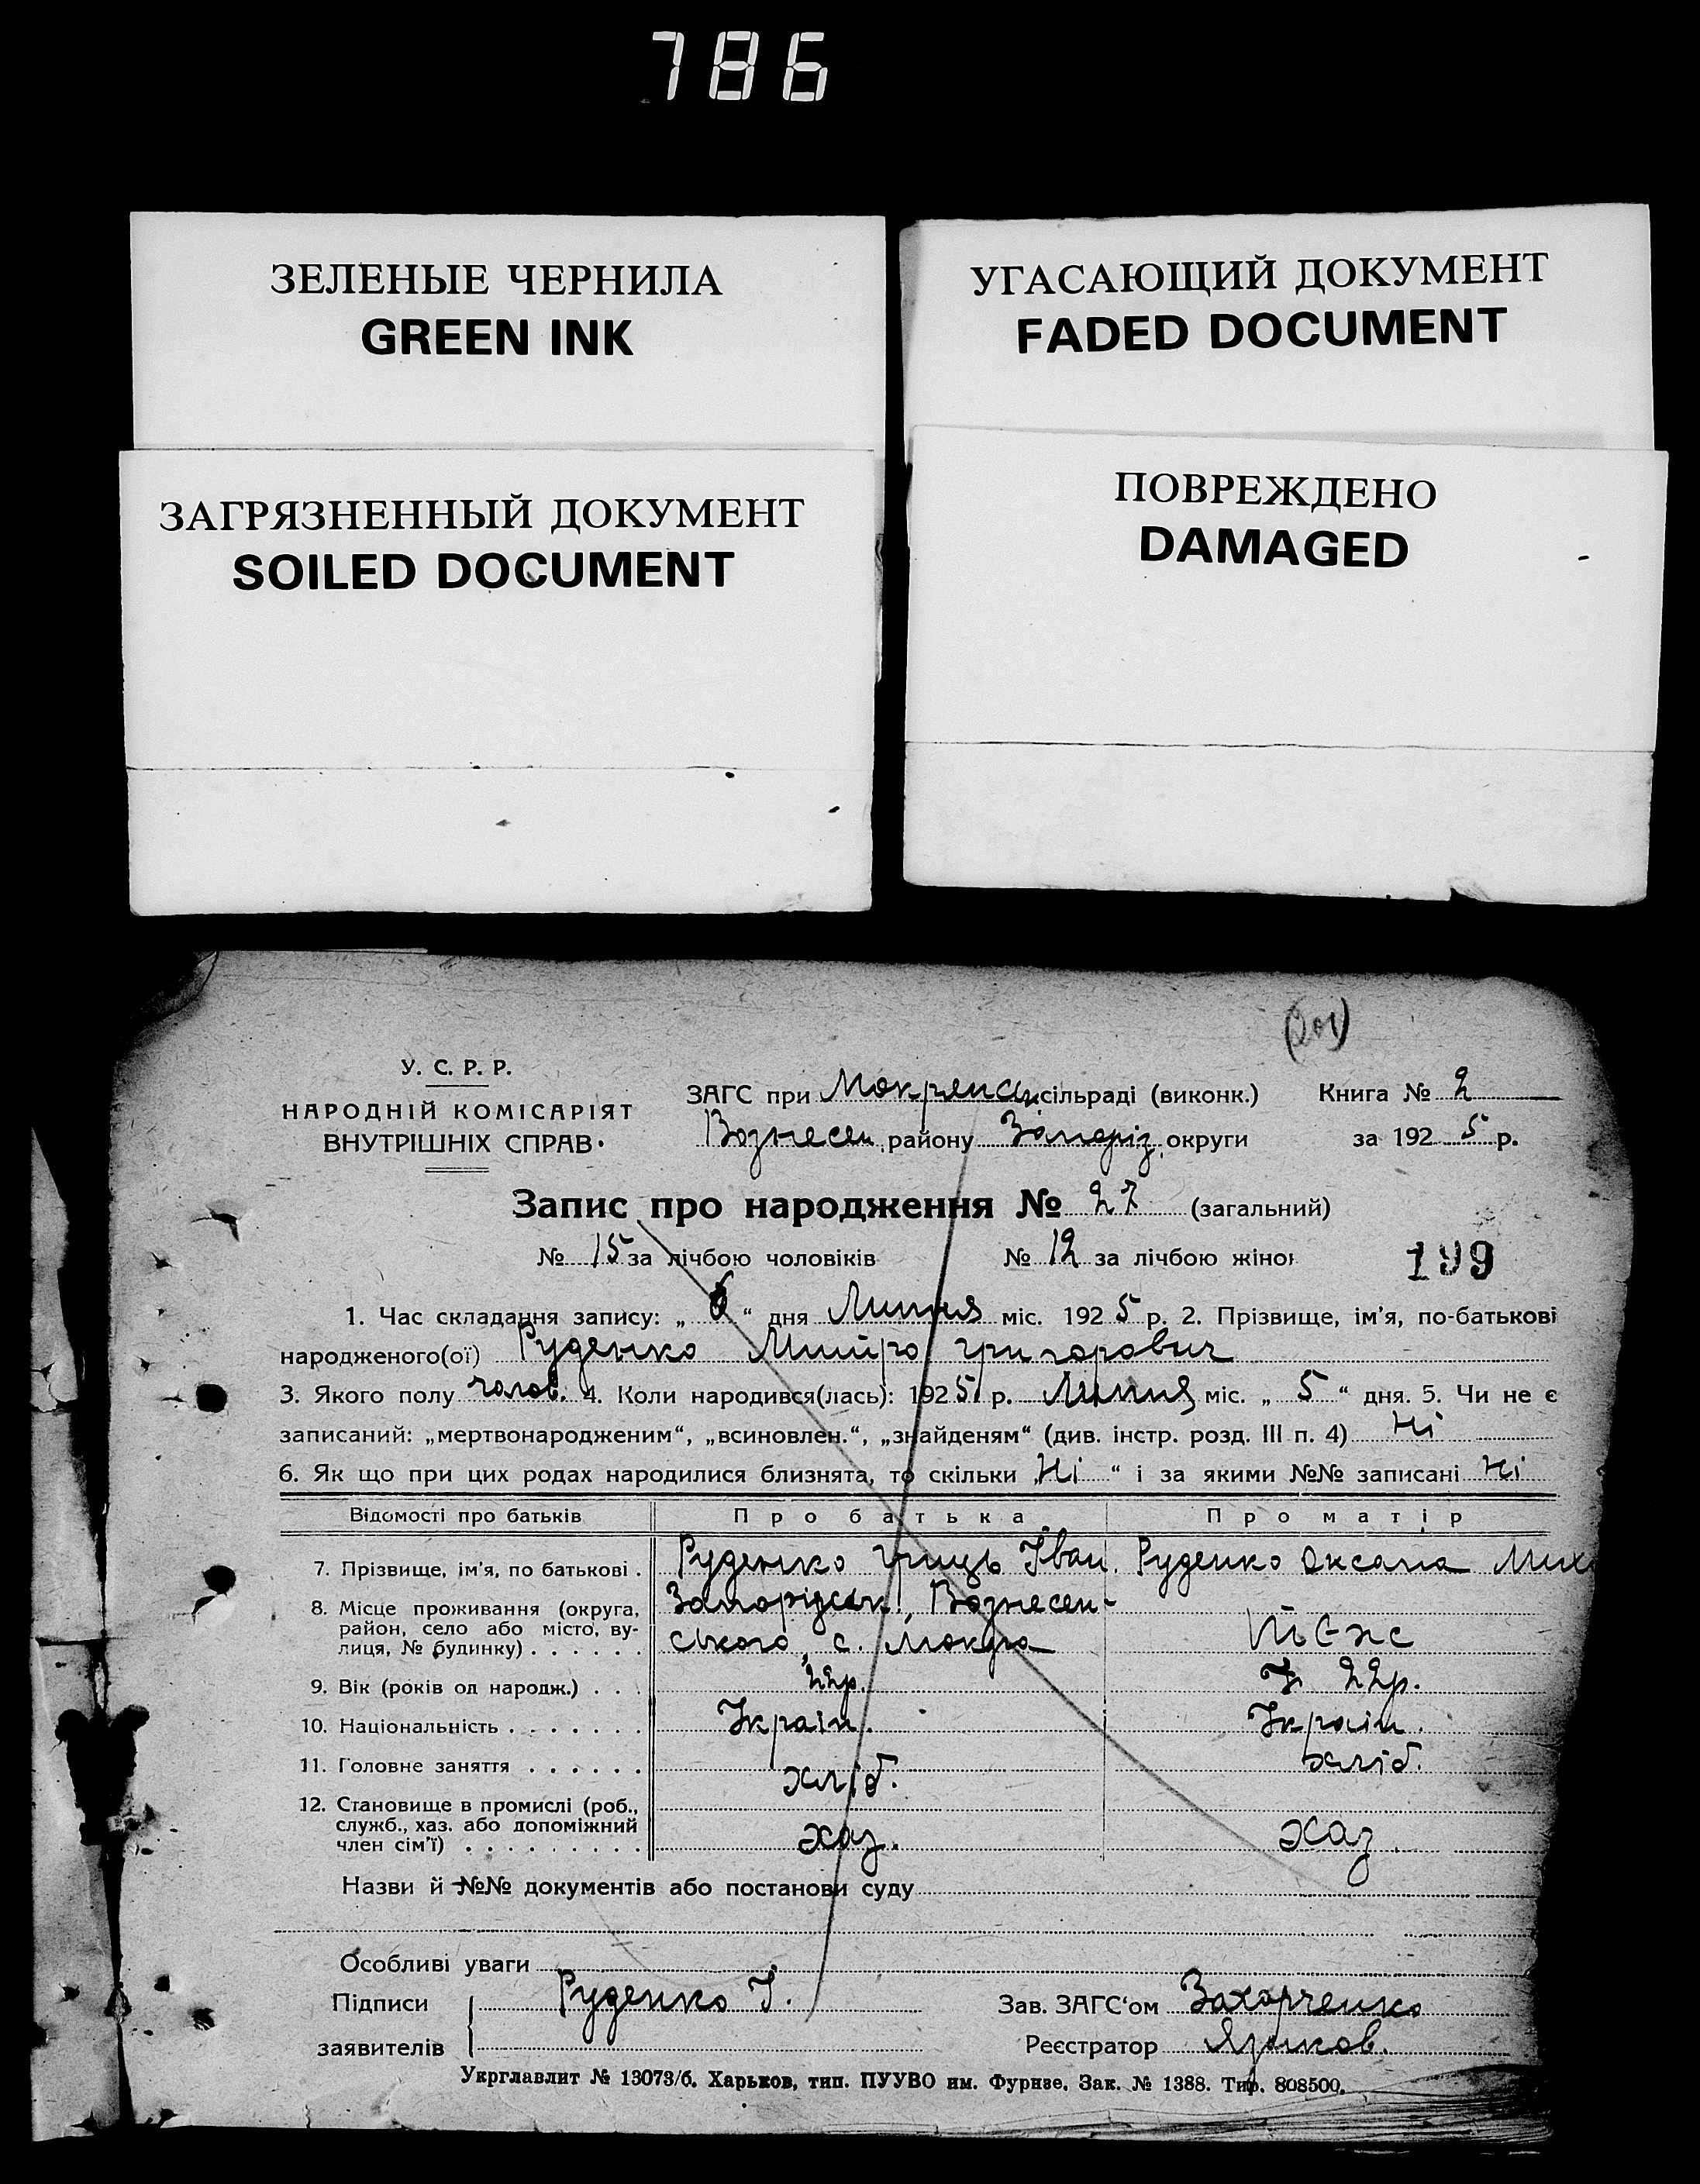 786
ЗЕЛЕНЫЕ ЧЕРНИЛА
GREEN INK
УГАСАЮЩИЙ ДОКУМЕНТ
FADED DOCUMENT
ЗАГРЯЗНЕННЫЙ ДОКУМЕНТ
SOILED DOCUMENT
ПОВРЕЖДЕНО
DAMAGED
(201)
У. С. Р. Р.
НАРОДНІЙ КОМІСАРІЯТ
ВНУТРІШНІХ СПРАВ.
ЗАГС при Мокрянск. сільраді (виконк.) Книга № 2
Вознесен. району Запоріз. округи за 1925 р.
Запис про народження № 27 (загальний)
№ 15 за лічбою чоловіків № 12 за лічбою жінок
199
1. Час складання запису: „ 6 “ дня Липня міс. 1925 р. 2. Прізвище, ім'я, по-батькові
народженого(ої) Руденко Григорович
3. Якого полу чолов. 4. Коли народився(лась): 1925 р. Липня міс. „ 5 “ дня. 5. Чи не є
записаний: „мертвонародженим“, „всиновлен.“, „знайденям“ (див. інстр. розд. III п. 4) Ні
6. Як що при цих родах народилися близнята, то скільки „Ні “ і за якими №№ записані Ні
Відомості про батьків Про батька Про матір
7. Прізвище, ім'я, по батькові . Руденко Гриць Іван. Руденко Оксана Мих
8. Місце проживання (округа, Запорізськ. Вознесен-
район, село або місто, ву-
лиця, № будинку) . . . . . . ського, с. Мокра
9. Вік (років од народж.) . . . 22р. 22р.
10. Національність . . . . . . . Україн. Україн.
11. Головне заняття . . . . . . хліб. хліб.
12. Становище в промислі (роб.,
служб., хаз. або допоміжний
член сім'ї) . . . . . . . . . хаз. хаз.
Назви й №№ документів або постанови суду
Особливі уваги
Підписи Руденко Г. Зав. ЗАГС'ом Захарченко
заявителів Реєстратор Язиков.
Укрглавлит № 13073/б. Харьков, тип. ПУУВО им. Фрунзе. Зак. № 1388. Тир. 808500.